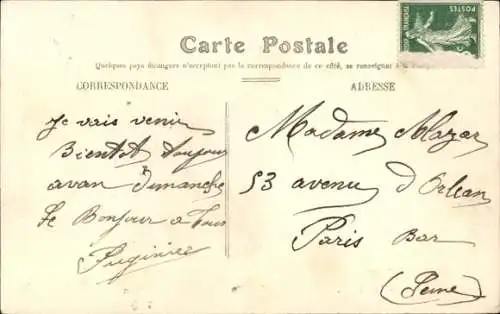 POSTES
Carte Postale
Quelques pays étrangers n'acceptent pas la correspondance de ce côté, se renseigner à la
CORRESPONDANCE
ADRESSE
Je vais venir
Bientot toujour
avan Dimanche
Le Bonjour a Tous
Madame Mazar
53 avenu d Orlean
Paris Bar